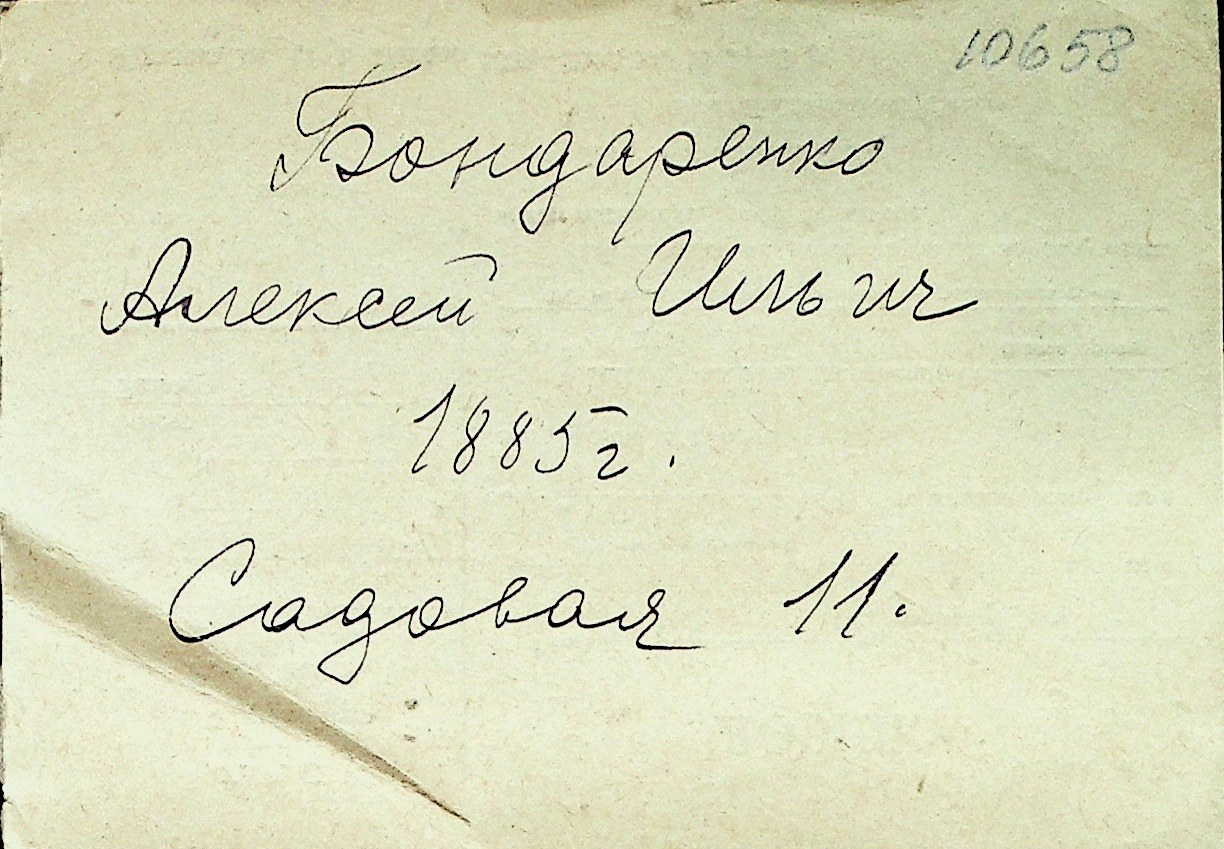 10658
Бондаренко
Алексей Ильич
1885 г.
Садовая 11.